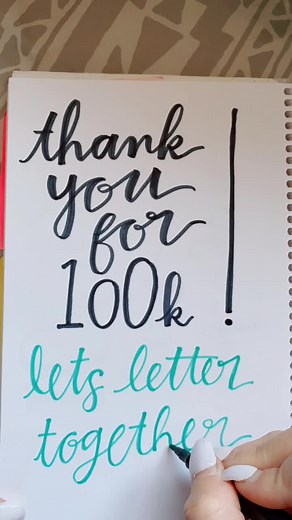 thank
you
for
100k !
lets letter
together